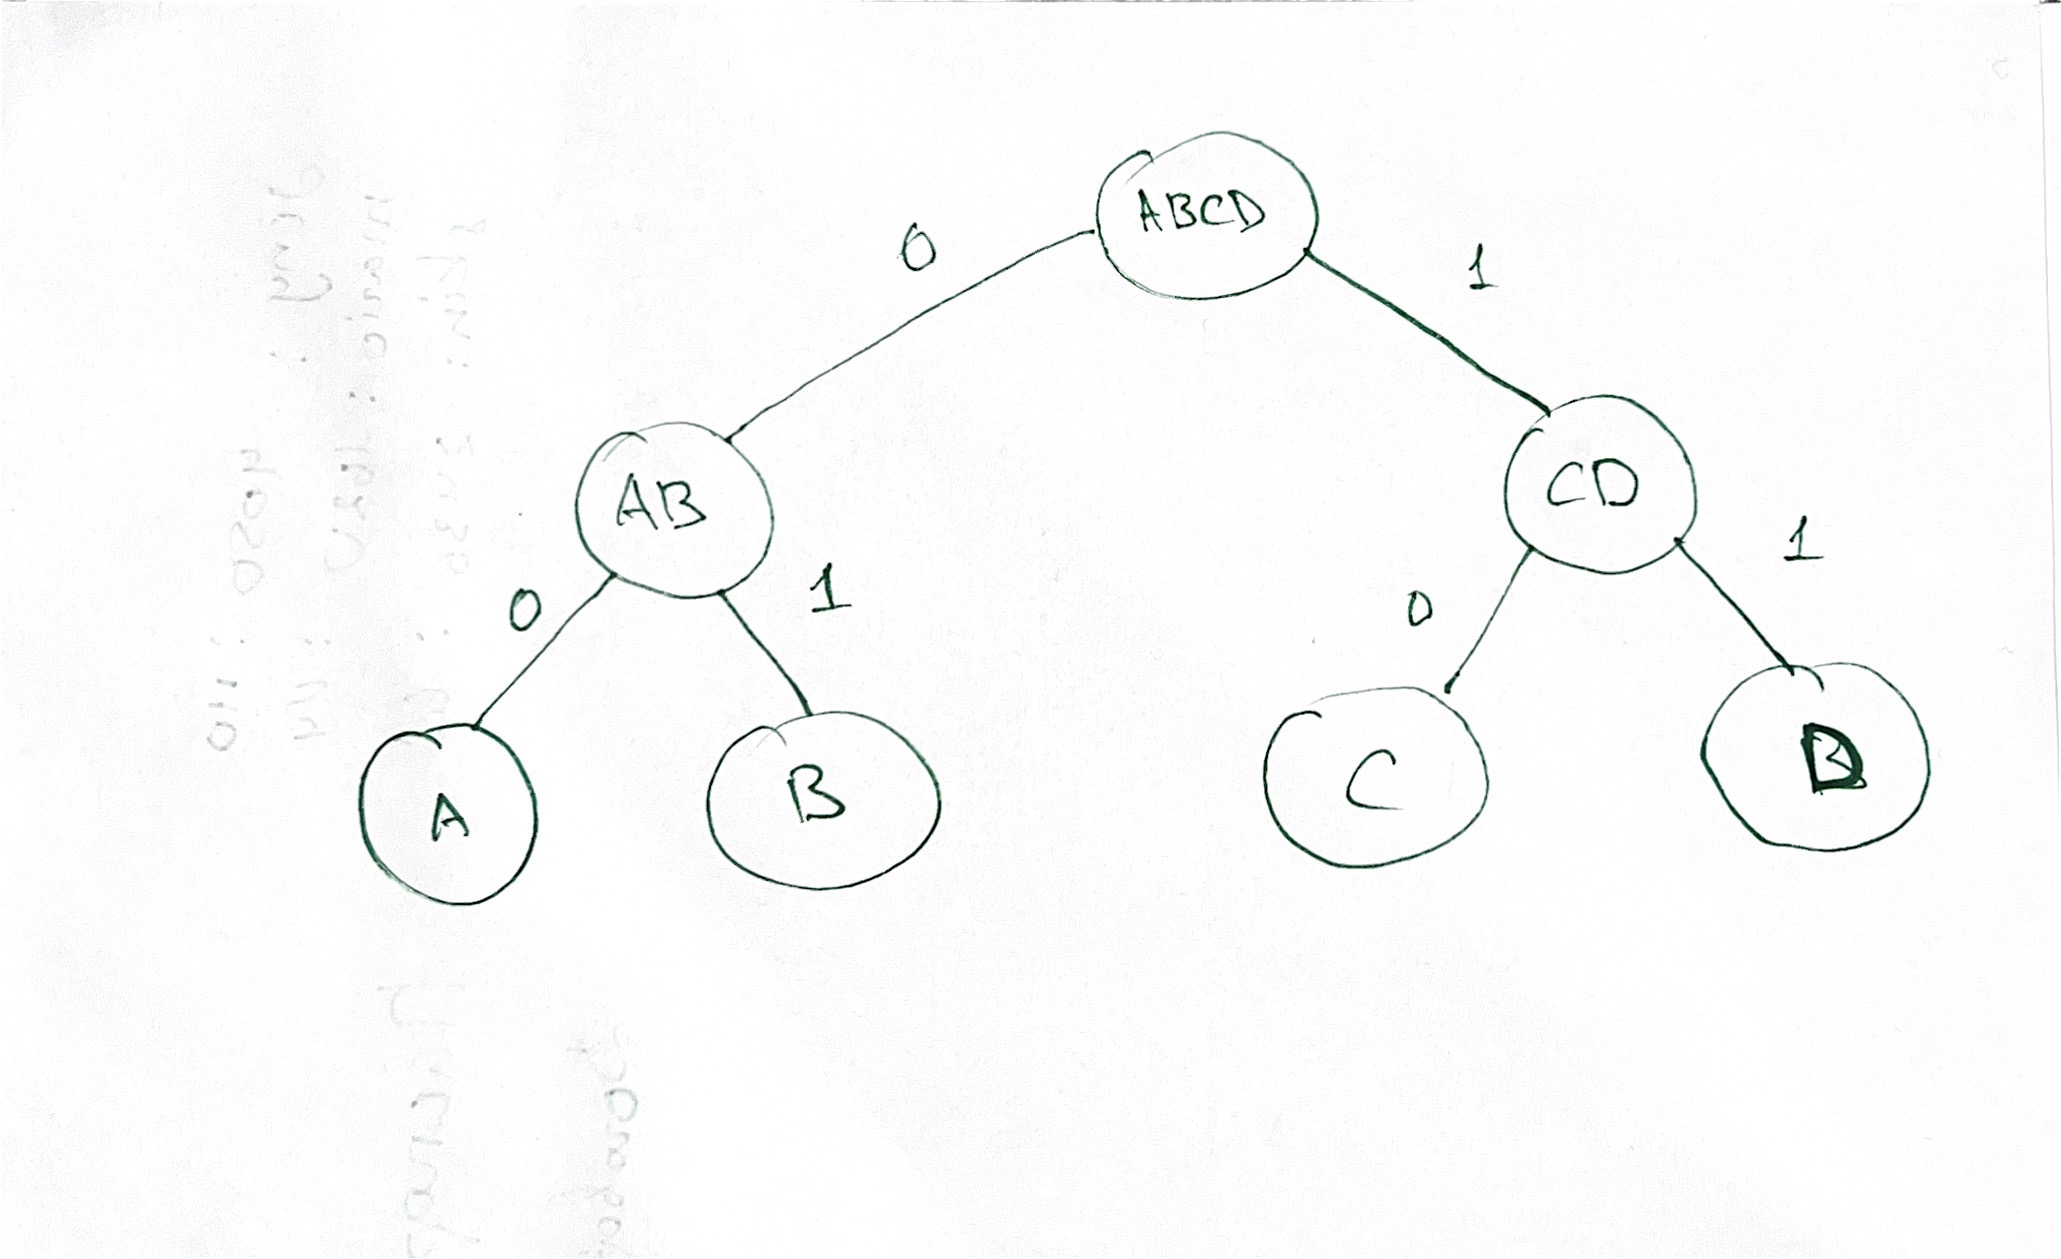 ABCD
0
1
AB
CD
0
1
0
1
A
B
C
D